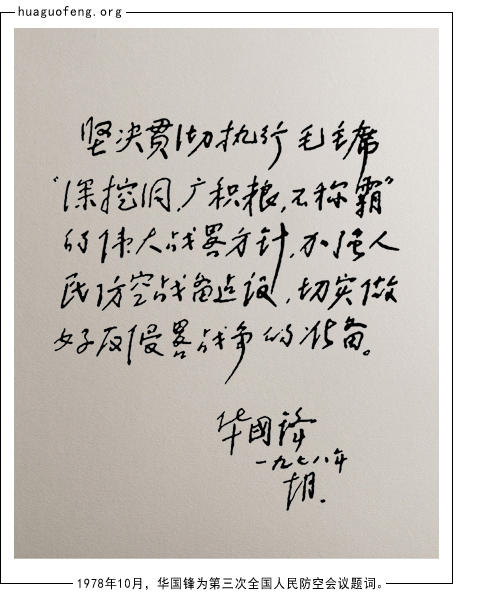 huaguofeng.org
坚决贯彻执行毛主席
“深挖洞,广积粮,不称霸”
的伟大战略方针,加强人
民防空战备建设,切实做
好反侵略战争的准备。
华国锋
一九七八年
十月.
1978年10月，华国锋为第三次全国人民防空会议题词。